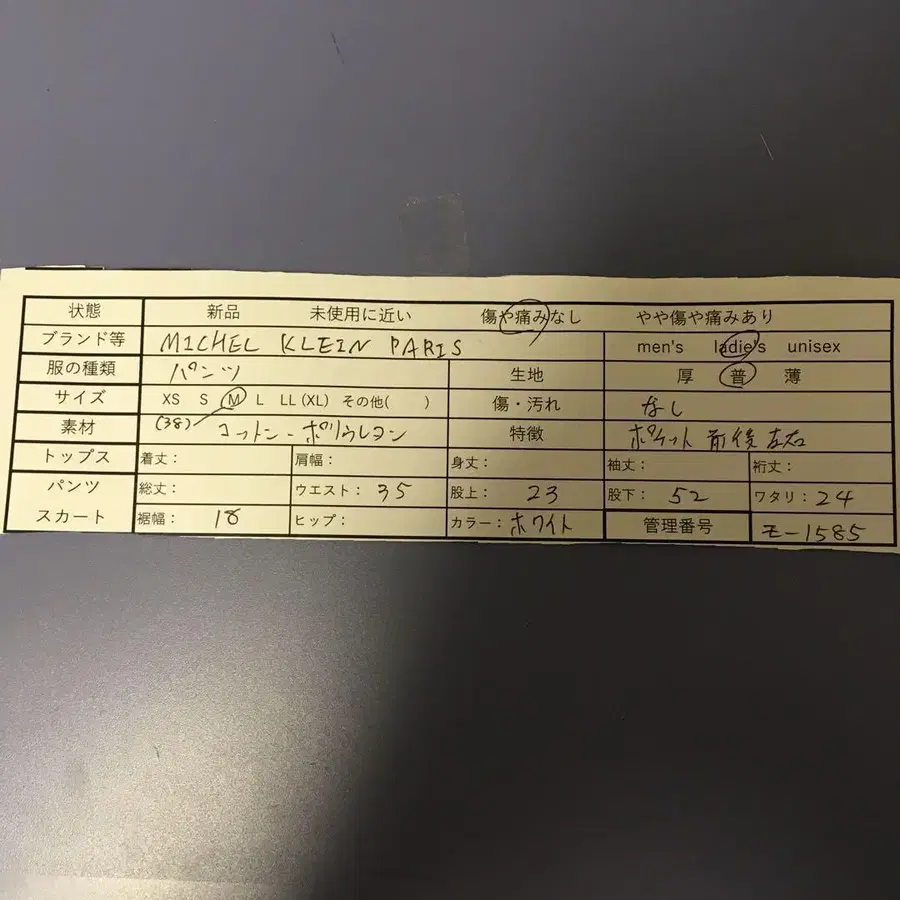 状態 新品 未使用に近い 傷や痛みなし やや傷や痛みあり
ブランド等 MICHEL KLEIN PARIS men's ladie's unisex
服の種類 パンツ 生地 厚 普 薄
サイズ XS S M L LL(XL) その他( ) 傷・汚れ なし
素材 (38) コットン・ポリウレタン 特徴 ポケット前後左右
トップス 着丈: 肩幅: 身丈: 袖丈: 裄丈:
パンツ 総丈: ウエスト: 35 股上: 23 股下: 52 ワタリ: 24
スカート 裾幅: 18 ヒップ: カラー: ホワイト 管理番号 モー1585